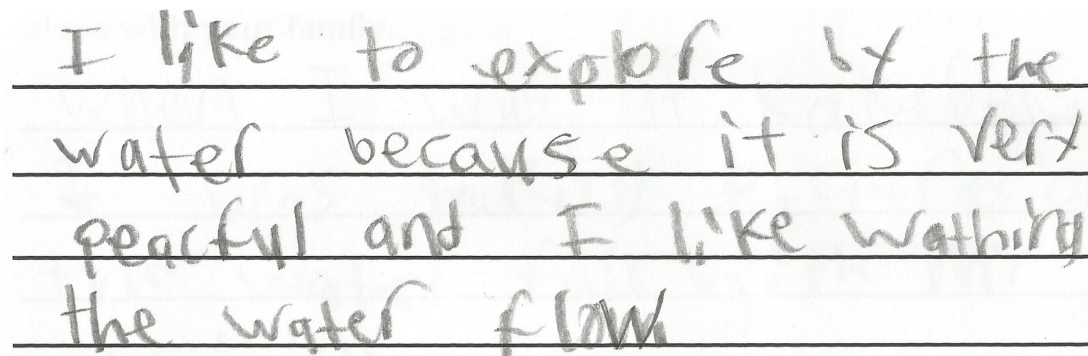 I like to explore by the
water because it is very
peacful and I like wathing
the water flow